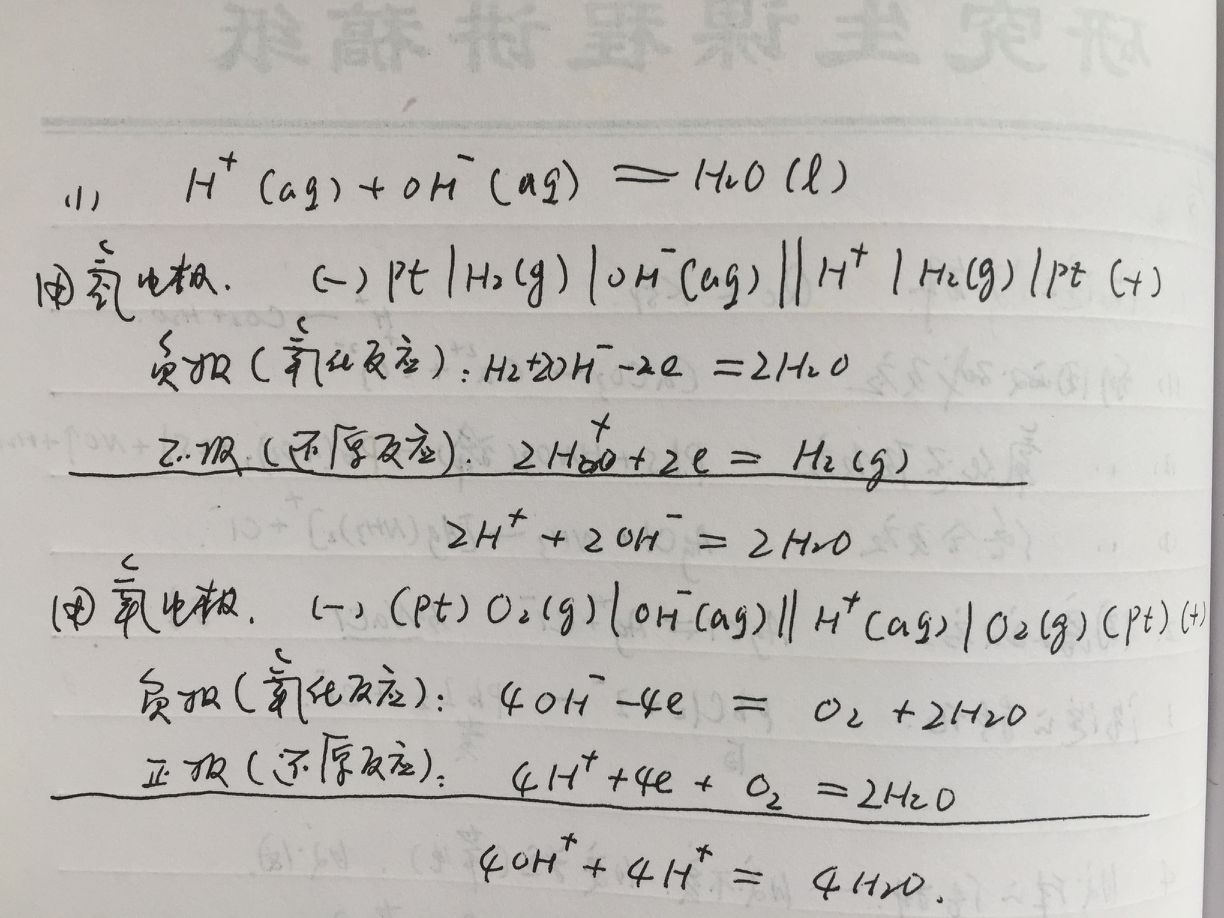 研究生课程讲稿纸
(1) H⁺(aq) + OH⁻(aq) = H₂O(l)
(由)氢电极. (-) Pt | H₂(g) | OH⁻(aq) || H⁺ | H₂(g) | Pt (+)
负极(氧化反应): H₂+2OH⁻-2e = 2H₂O
正极(还原反应): 2H⁺ + 2e = H₂(g)
2H⁺ + 2OH⁻ = 2H₂O
(由)氧电极. (-) (Pt) O₂(g) | OH⁻(aq) || H⁺(aq) | O₂(g) (Pt) (+)
负极(氧化反应): 4OH⁻-4e = O₂ + 2H₂O
正极(还原反应): 4H⁺+4e + O₂ = 2H₂O
4OH⁺ + 4H⁺ = 4H₂O.